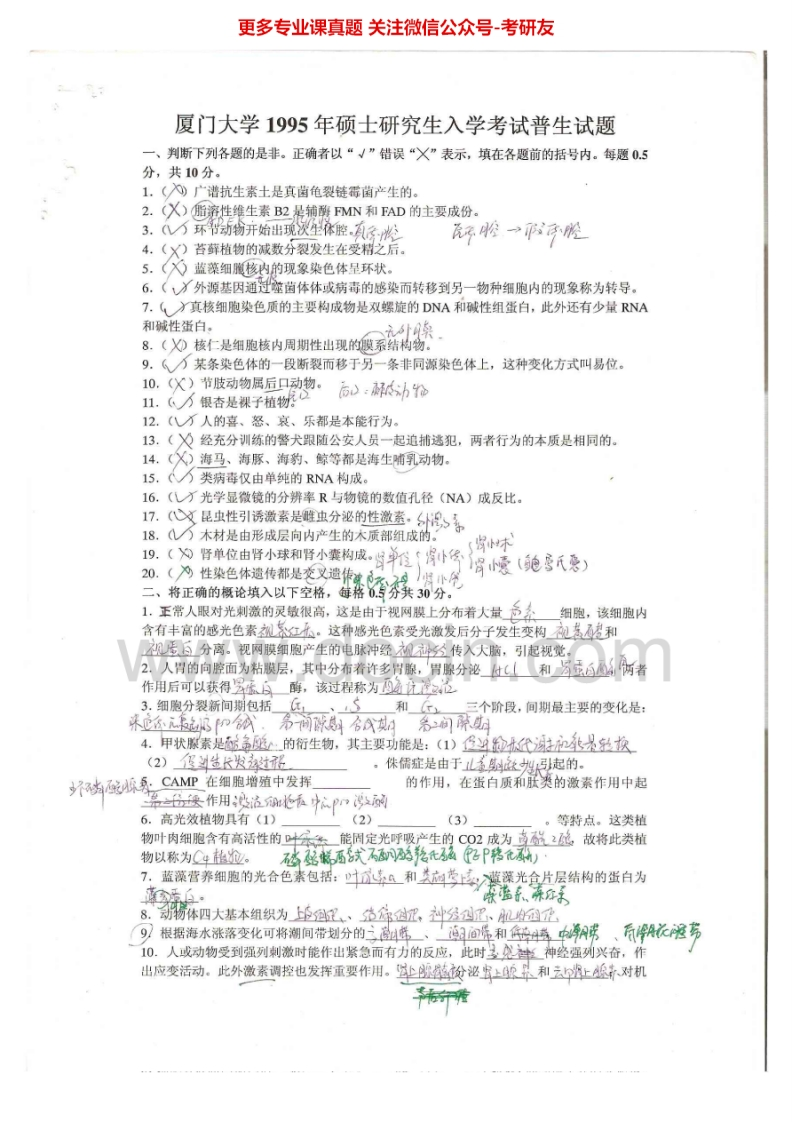 更多专业课真题 关注微信公众号-考研友
厦门大学 1995 年硕士研究生入学考试普生试题
一、判断下列各题的是非。正确者以“√”错误“╳”表示，填在各题前的括号内。每题 0.5
分，共 10 分。
1.（╳）广谱抗生素土是真菌龟裂链霉菌产生的。
2.（╳）脂溶性维生素 B2 是辅酶 FMN 和 FAD 的主要成份。
3.（√）环节动物开始出现次生体腔。真体腔
4.（╳）苔藓植物的减数分裂发生在受精之后。
5.（╳）蓝藻细胞核内的现象染色体呈环状。
6.（√）外源基因通过噬菌体体或病毒的感染而转移到另一物种细胞内的现象称为转导。
7.（√）真核细胞染色质的主要构成物是双螺旋的 DNA 和碱性组蛋白，此外还有少量 RNA
和碱性蛋白。
8.（╳）核仁是细胞核内周期性出现的膜系结构物。
9.（√）某条染色体的一段断裂而移于另一条非同源染色体上，这种变化方式叫易位。
10.（╳）节肢动物属后口动物。
11.（√）银杏是裸子植物。
12.（√）人的喜、怒、哀、乐都是本能行为。
13.（╳）经充分训练的警犬跟随公安人员一起追捕逃犯，两者行为的本质是相同的。
14.（╳）海马、海豚、海豹、鲸等都是海生哺乳动物。
15.（√）类病毒仅由单纯的 RNA 构成。
16.（√）光学显微镜的分辨率 R 与物镜的数值孔径（NA）成反比。
17.（╳）昆虫性引诱激素是雌虫分泌的性激素。外激素
18.（√）木材是由形成层向内产生的木质部组成的。
19.（╳）肾单位由肾小球和肾小囊构成。肾单位 肾小体 肾小管 肾小球 肾小囊（鲍曼氏囊）
20.（╳）性染色体遗传都是交叉遗传。
二、将正确的概论填入以下空格，每格 0.5 分共 30 分。
1．正常人眼对光刺激的灵敏很高，这是由于视网膜上分布着大量 色素 细胞，该细胞内
含有丰富的感光色素 视紫红质。这种感光色素受光激发后分子发生变构 视黄醛和
视蛋白 分离。视网膜细胞产生的电脉冲经 视神经 传入大脑，引起视觉。
www.
2．人胃的向腔面为粘膜层，其中分布着许多胃腺，胃腺分泌 HCl 和 胃蛋白酶原 两者
作用后可以获得 胃蛋白 酶，该过程称为
3. 细胞分裂新间期包括 G₁ 、 S 和 G₂ 三个阶段，间期最主要的变化是：
4．甲状腺素是 酪氨酸 的衍生物，其主要功能是：（1）
（2） 促进生长发育过程 。侏儒症是由于 引起的。
5．CAMP 在细胞增殖中发挥 的作用，在蛋白质和肽类的激素作用中起
第二信使 作用
6．高光效植物具有（1） （2） （3） 。等特点。这类植
物叶肉细胞含有高活性的 能固定光呼吸产生的 CO2 成为 草酰乙酸 故将此类植
物以称为 C4 植物。
7．蓝藻营养细胞的光合色素包括：叶绿素a 和 类胡萝卜素，蓝藻光合片层结构的蛋白为
藻胆蛋白。
8．动物体四大基本组织为 上皮组织、结缔组织、神经组织、肌肉组织。
9．根据海水涨落变化可将潮间带划分的
10．人或动物受到强列刺激时能作出紧急而有力的反应，此时 神经强列兴奋，作
出应变活动。此外激素调控也发挥重要作用。 分泌 肾上腺素 和 去甲肾上腺素 对机